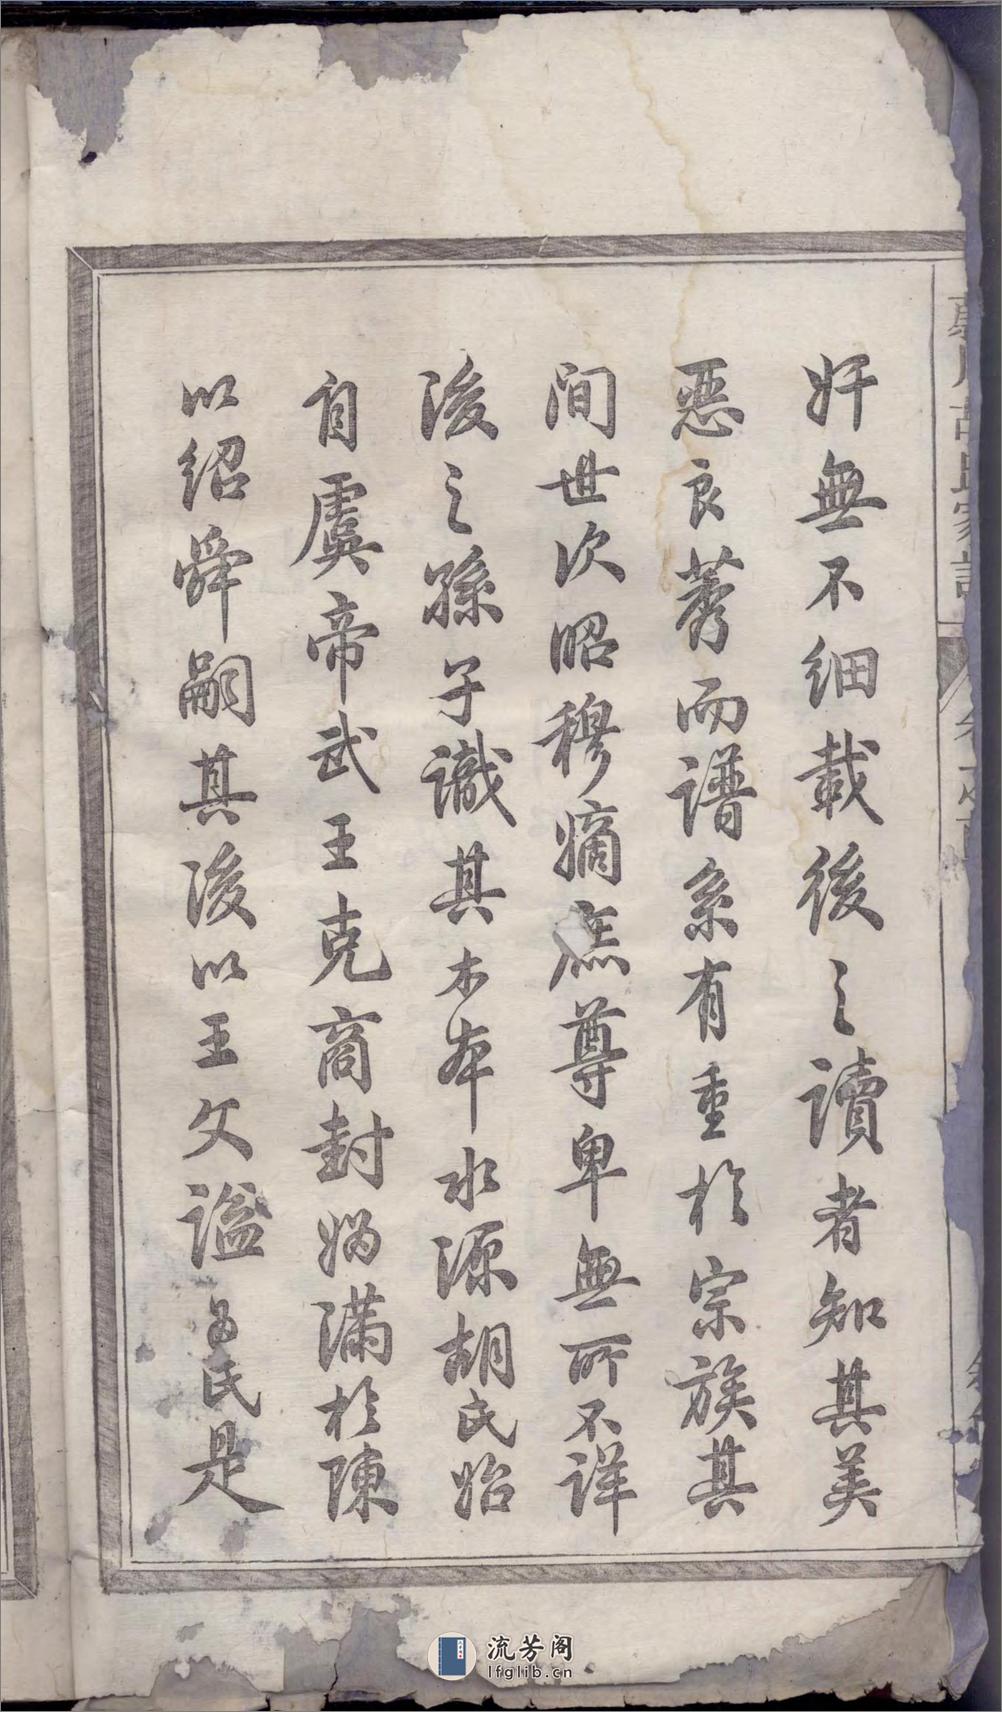 奸無不細載後之讀者知其美
惡良莠而譜系有重於宗族其
间世次昭穆嫡庶尊卑無所不詳
後之孫子識其木本水源胡氏始
自虞帝武王克商封媯满於陳
以紹舜嗣其後以王父謚為氏是
胡氏家譜
流芳阁
lfglib.cn